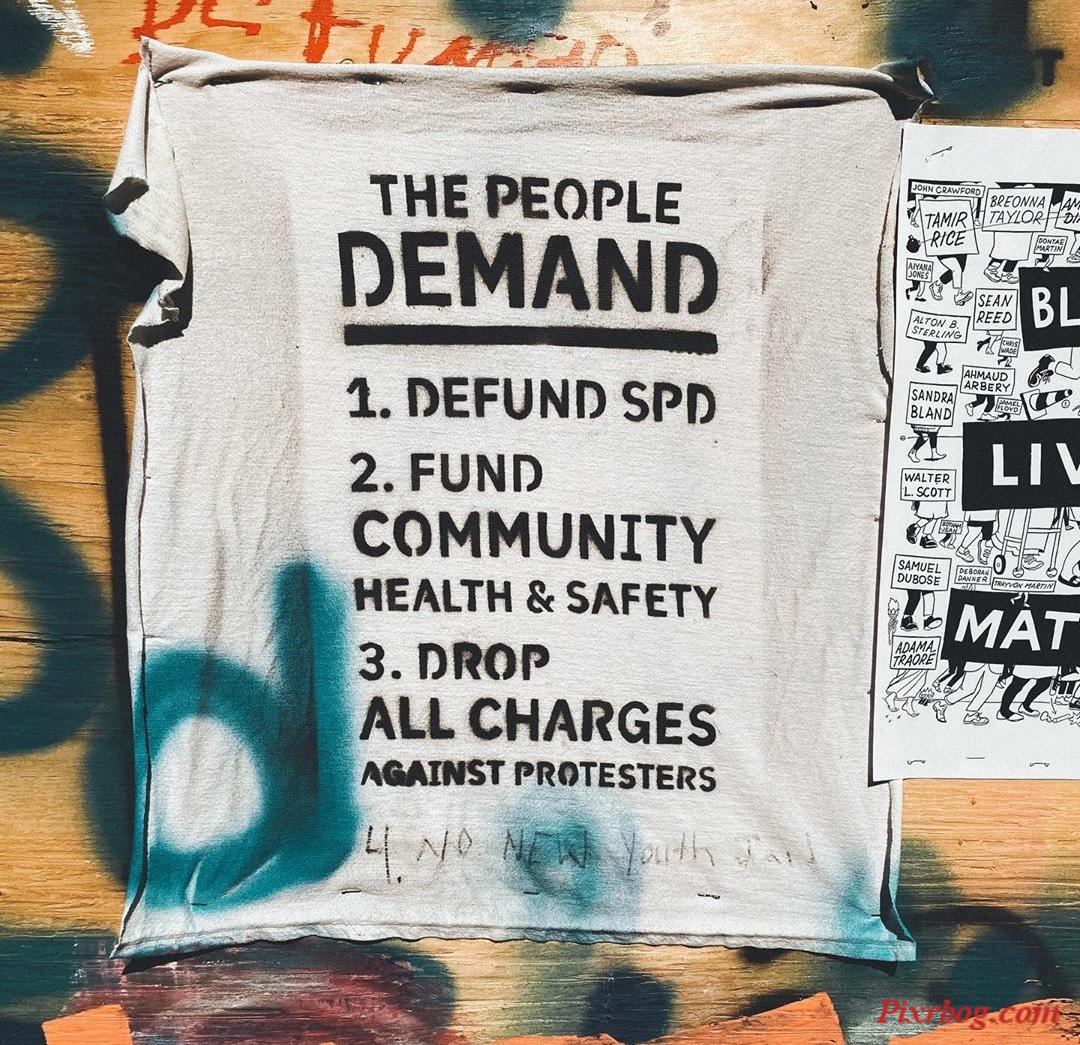 THE PEOPLE
DEMAND
1. DEFUND SPD
2. FUND
COMMUNITY
HEALTH & SAFETY
3. DROP
ALL CHARGES
AGAINST PROTESTERS
4. NO NEW Youth Jail
JOHN CRAWFORD
TAMIR
RICE
BREONNA
TAYLOR
DONTAE
MARTIN
AIYANA
JONES
SEAN
REED
BL
ALTON B.
STERLING
CHRIS
WADE
AHMAUD
ARBERY
SANDRA
BLAND
JAMEL
FLOYD
LIV
WALTER
L. SCOTT
BOTHAM
JEAN
SAMUEL
DUBOSE
DEBORAH
DANNER
TRAYVON MARTIN
MAT
ADAMA
TRAORE
Pixrbog.com